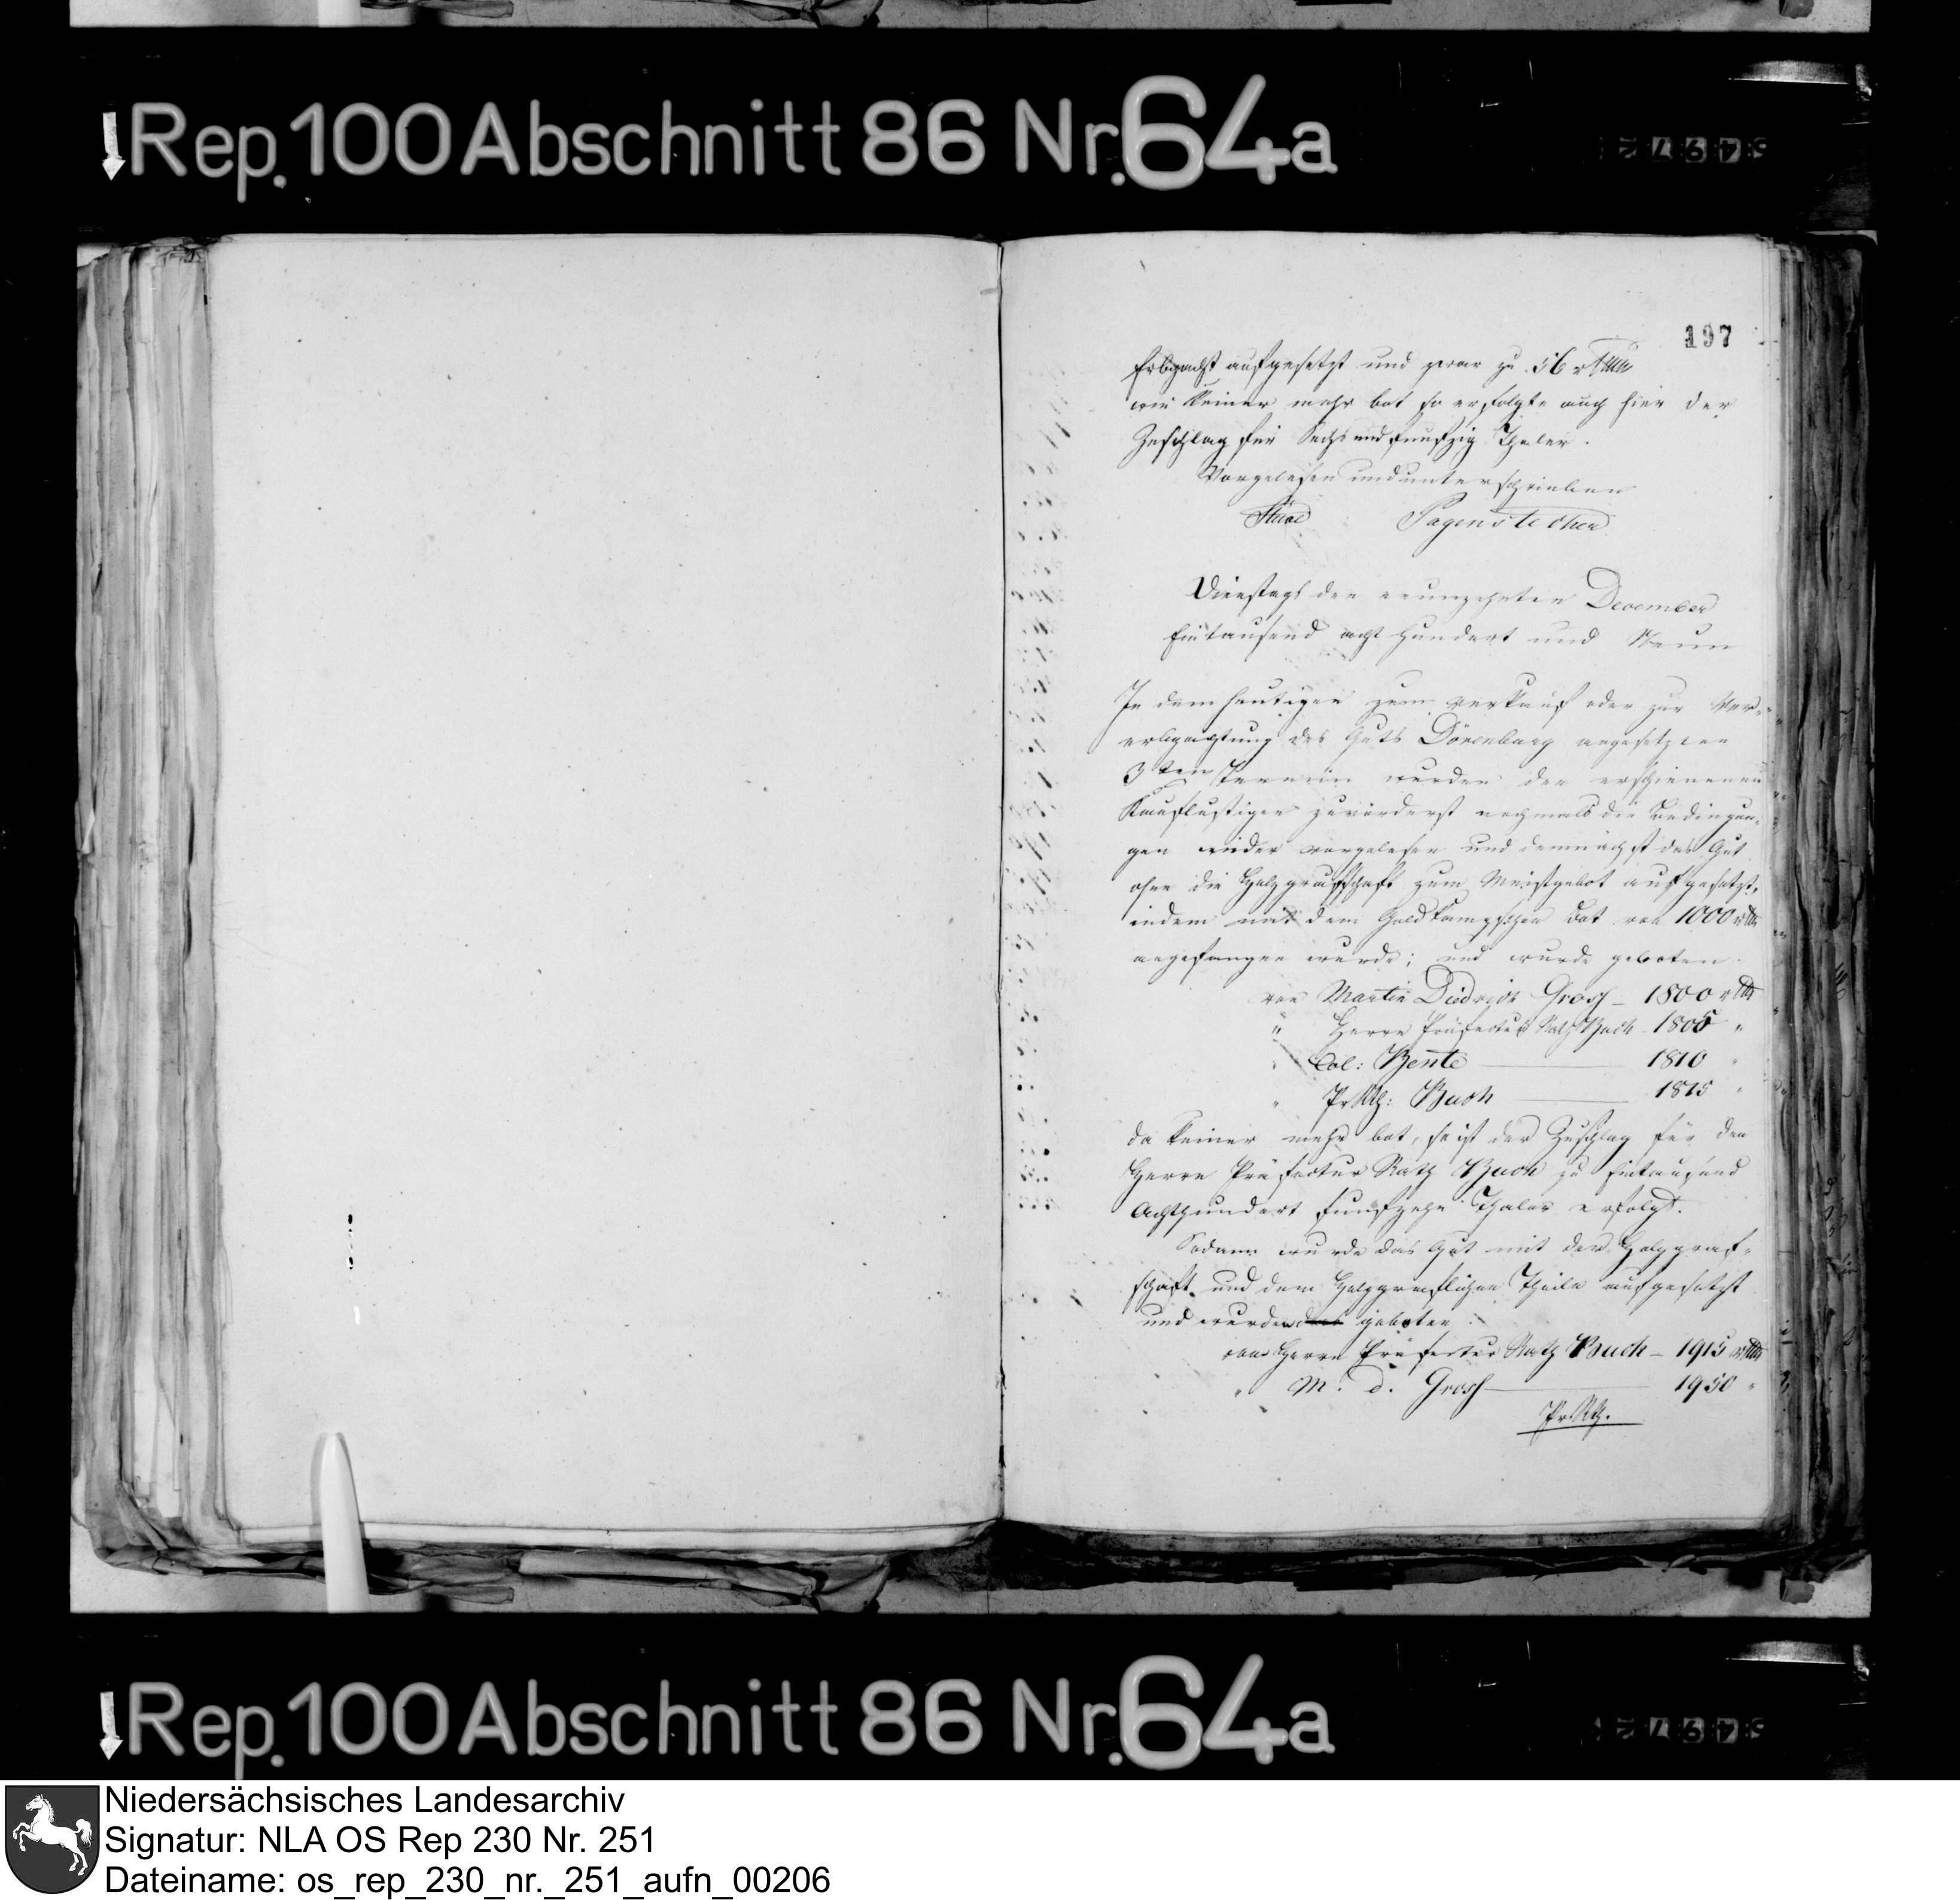 Rep. 100 Abschnitt 86 Nr. 64a
197
Erbpacht aufgesetzt und zwar zu 56 rthlr
wie keiner mehr bot so erfolgte auch hier der
Zuschlag für Sechs und funfzig Thaler.
Vorgelesen und unterschrieben
Stüve Pagenstecher
Dienstags den neunzehnten December
Eintausend acht hundert und Neun
In dem heutigen zum Verkauf oder zur Ver-
erbpachtung des Guts Dörenburg angesetzten
3ten Termin wurden den erschienenen
Kauflustigen zuvörderst nochmals die Bedingun-
gen wieder vorgelesen und demnächst das Gut
ohne die Holzgrafschaft zum Meistgebot aufgesetzt,
indem mit dem Goldkampschen Bot von 1000 rthlr
angefangen wurde; und wurde geboten
von Martin Diedrich Gross – 1800 rthlr
" Herrn Präfectur Rath Buch 1805 "
Col: Bente 1810 "
" Pr Rth: Buch 1815 "
da keiner mehr bot, so ist der Zuschlag für den
Herrn Präfectur Rath Buch zu Eintausend
Achthundert funfzehn Thaler erfolgt.
Sodann wurde das Gut mit der Holzgraf-
schaft und dem Holzgräflichen Theile aufgesetzt
und wurden geboten
von Herrn Präfectur Rath Buch – 1915 rthlr
" M. d. Gross 1950 "
Pr. Rth.
Rep. 100 Abschnitt 86 Nr. 64a
Niedersächsisches Landesarchiv
Signatur: NLA OS Rep 230 Nr. 251
Dateiname: os_rep_230_nr._251_aufn_00206